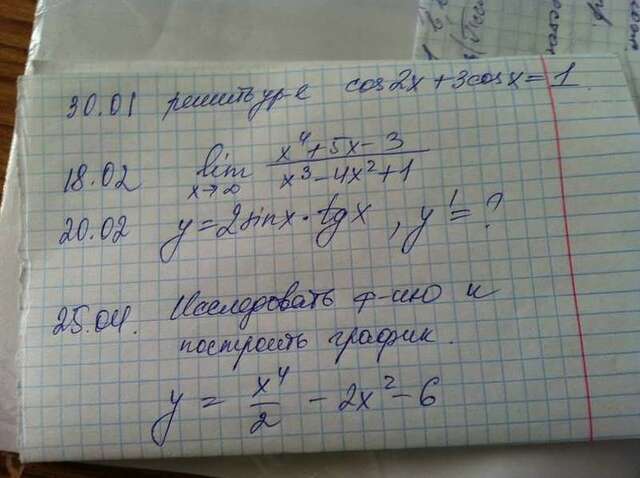 30.01 решить ур-е cos2x+3cosx=1
18.02 lim x→∞ x⁴+5x-3 / x³-4x²+1
20.02 y=2sinx·tgx, y'=?
25.04. Исследовать ф-цию и
построить график.
y = x⁴/2 - 2x² - 6